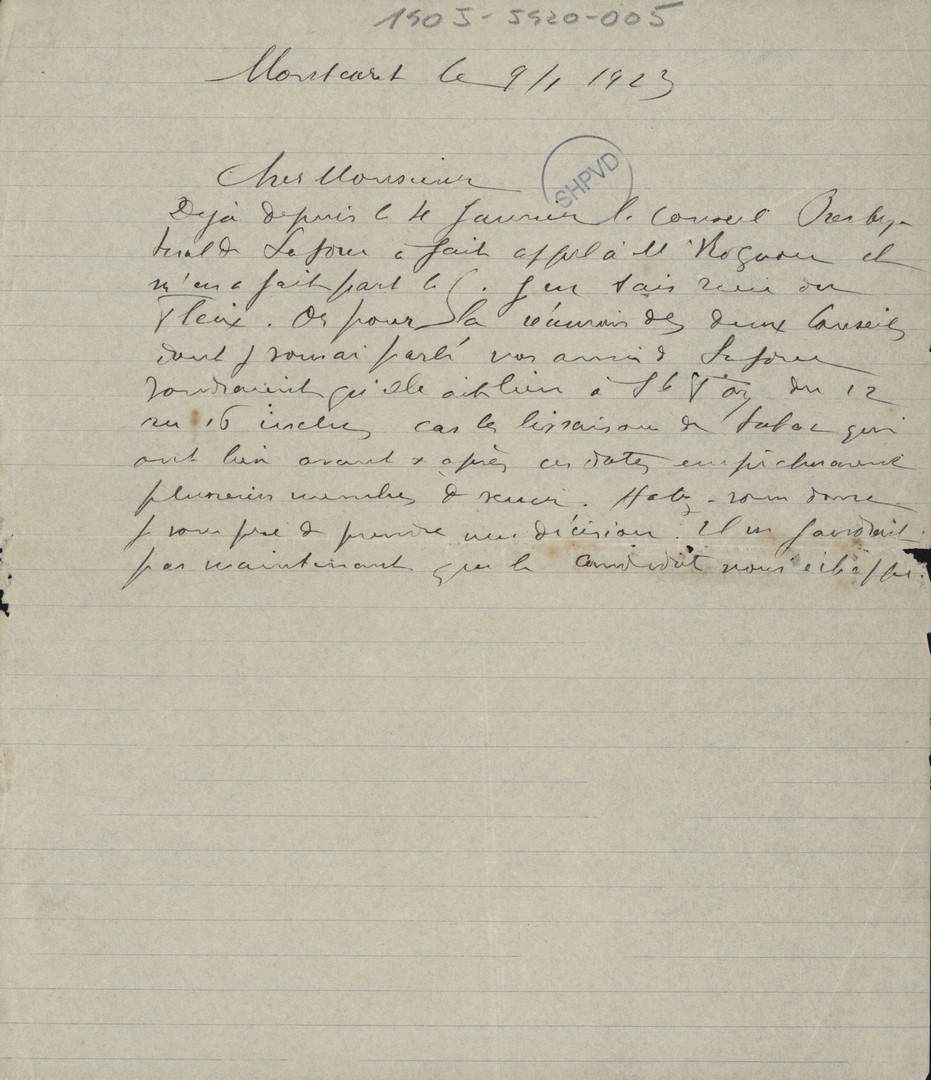 1903-5920-005
Montcaret le 9/1 1923
SHPVD
Cher Monsieur
Dejà depuis le 4 Janvier le Conseil Presby-
teral de Laforce a fait appel à M et
m'en a fait part le 6. Je ne sais rien du
Fleix. Or pour la réunion des deux Conseils
dont je vous ai parlé vos amis de Laforce
voudraient qu'elle ait lieu à Ste Foy du 12
au 16 inclus car les livraisons de tabac qui
ont lieu avant & après ces dates empêcheraient
plusieurs membres de venir. Hatez-vous donc
je vous prie de prendre une décision. Il ne faudrait
pas maintenant que le candidat nous échappe.